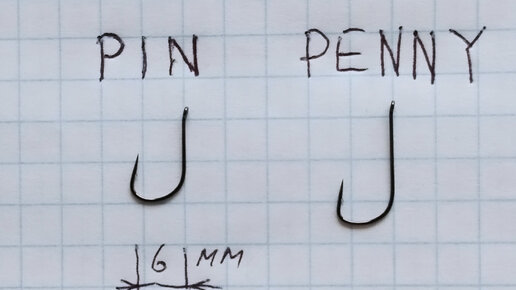 PIN PENNY
6 MM